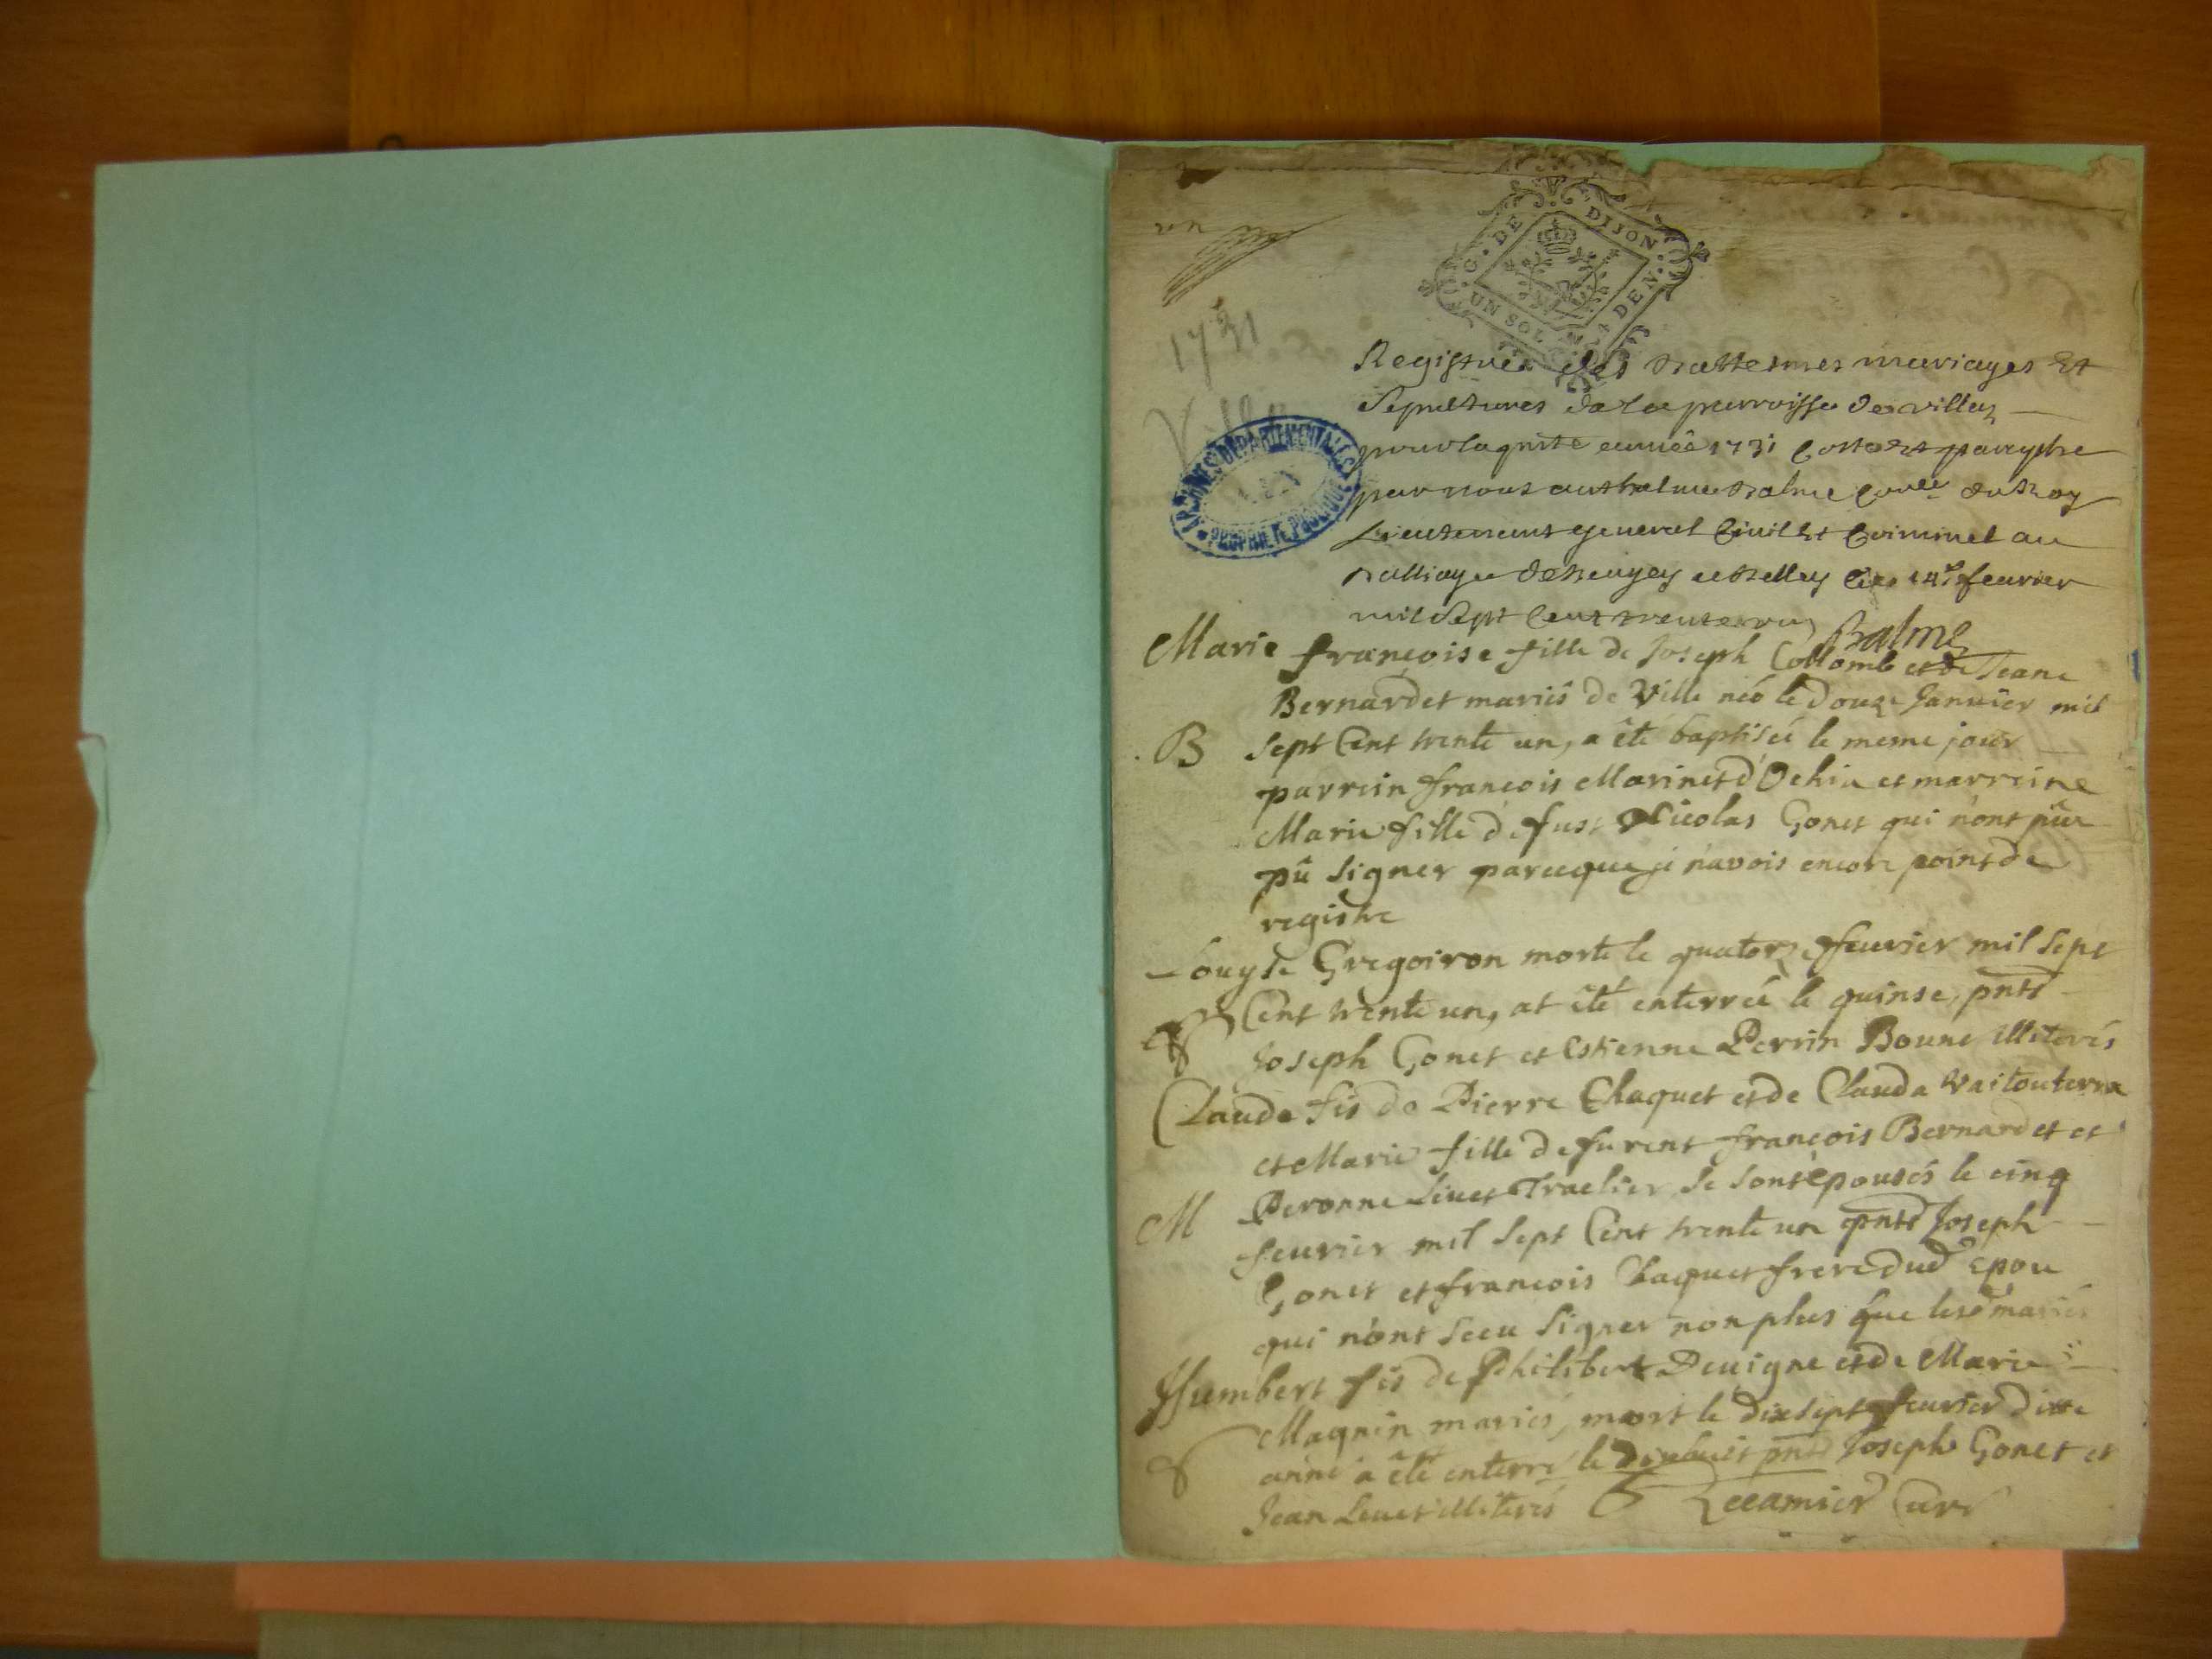 un
G. DE DIJON
UN SOL 4 DEN.
1731
Ville
ARCHIVES DEPARTEMENTALES
PROPRIETE PUBLIQUE
Registre des Battesmes mariages Et
Sepultures de la parroisse de villes
pour la pnte année 1731 Cotté Et paraphé
par nous Balme du Roy
Lieutenant general Civil Et Criminel au
Balliage de Beugey a Belley Ce 14e feurier
mil Sept Cent trente un Balme
Marie françoise fille de Joseph Collomb et de Jeane
Bernardet mariés de Ville néé le douze Januier mil
B Sept Cent trente un, a êté baptiséé le meme jour
parrein francois Marinet d'Ochia et marreine
Marie fille de fust Nicolas Gonet qui n'ont
pû Signer parceque je n'avois encore point de
registre
Louyse Gregoiron morte le quatorze feurier mil Sept
Cent trente un, at êté enterréé le quinse, pnts
Joseph Gonet et Estienne Perrin Boune illiterés
Claude fis de Pierre Chaquet et de Clauda Vaitouterra
et Marie fille defurent françois Bernardet et
M Peronne Liuet Traclier Se Sont épousés le cinq
feurier mil Sept Cent trente un pnts Joseph
Gonet et francois Chaquet frere dud Epou
qui n'ont Sceu Signer non plus que lesd mariés
Humbert fis de Philibert Deuigne et de Marie
Magnin mariés, mort le dixsept feurier ditte
anné a êté enterré le dixhuit pnts Joseph Gonet et
Jean Leuet illiterés Reecamier Curé